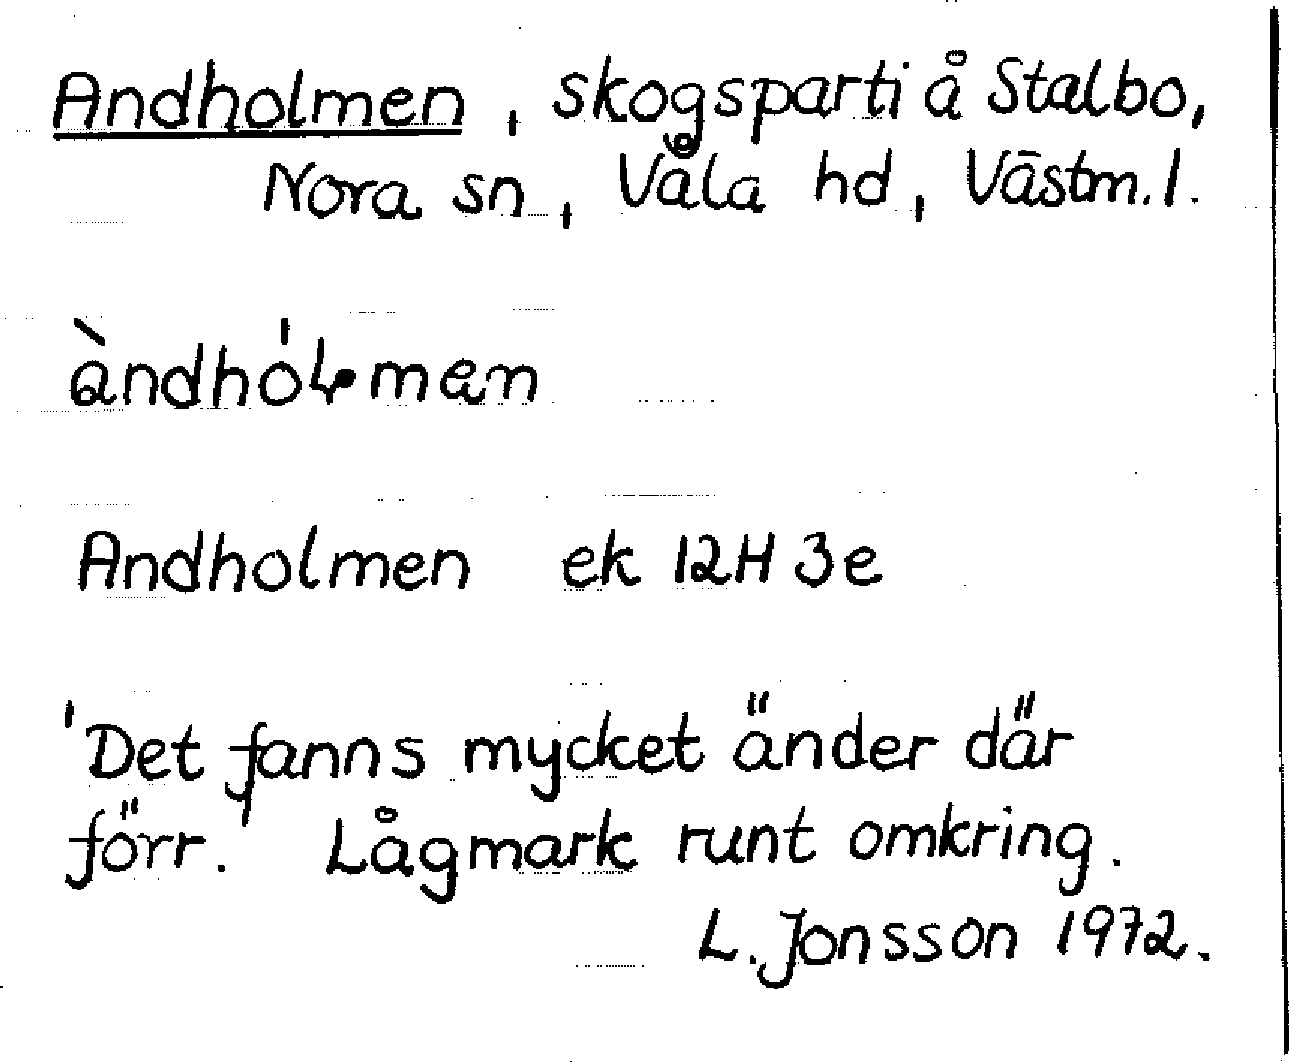 Andholmen, skogsparti å Stalbo,
Nora sn, Våla hd, Västm. l.
àndhóĺ•mæn
Andholmen ek 12H 3e
'Det fanns mycket änder där
förr.' Lågmark runt omkring.
L. Jonsson 1972.